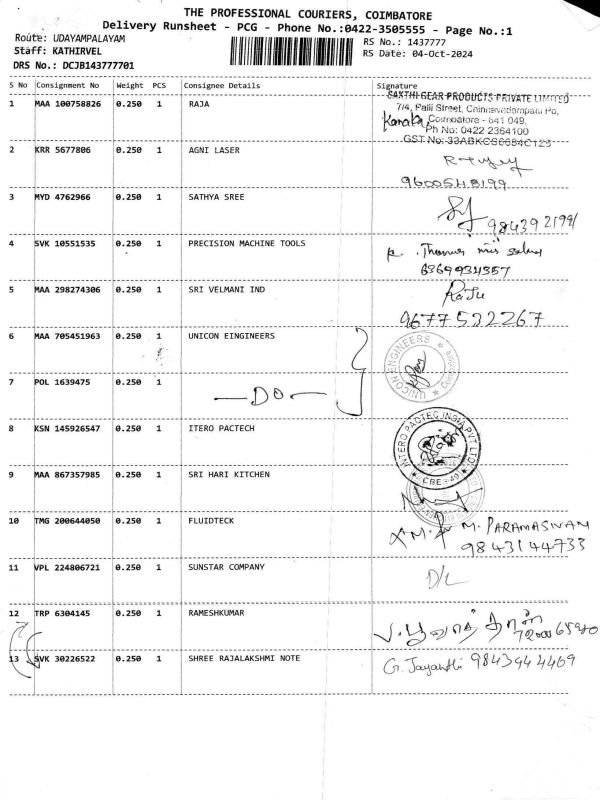 THE PROFESSIONAL COURIERS, COIMBATORE
Delivery Runsheet - PCG - Phone No.:0422-3505555 - Page No.:1
Route: UDAYAMPALAYAM RS No.: 1437777
Staff: KATHIRVEL RS Date: 04-Oct-2024
DRS No.: DCJB143777701
S No Consignment No Weight PCS Consignee Details Signature
1 MAA 100758826 0.250 1 RAJA
SAKTHI GEAR PRODUCTS PRIVATE LIMITED
7/4, Palli Street,
Coimbatore - 641 049.
Ph No: 0422 2364100
GST No:
2 KRR 5677806 0.250 1 AGNI LASER
9600548199
3 MYD 4762966 0.250 1 SATHYA SREE
4 SVK 10551535 0.250 1 PRECISION MACHINE TOOLS
5 MAA 298274306 0.250 1 SRI VELMANI IND
Raju
9677532267
6 MAA 705451963 0.250 1 UNICON EINGINEERS
UNICON ENGINEERS
7 POL 1639475 0.250 1
-DO-
8 KSN 145926547 0.250 1 ITERO PACTECH
ITERO PACTEC INDIA PVT LTD
CBE - 49
9 MAA 867357985 0.250 1 SRI HARI KITCHEN
10 TMG 200644050 0.250 1 FLUIDTECK
M. PARAMASIVAM
9843144733
11 VPL 224806721 0.250 1 SUNSTAR COMPANY
D/L
12 TRP 6304145 0.250 1 RAMESHKUMAR
13 SVK 30226522 0.250 1 SHREE RAJALAKSHMI NOTE
G. Jayanthi 9843944469